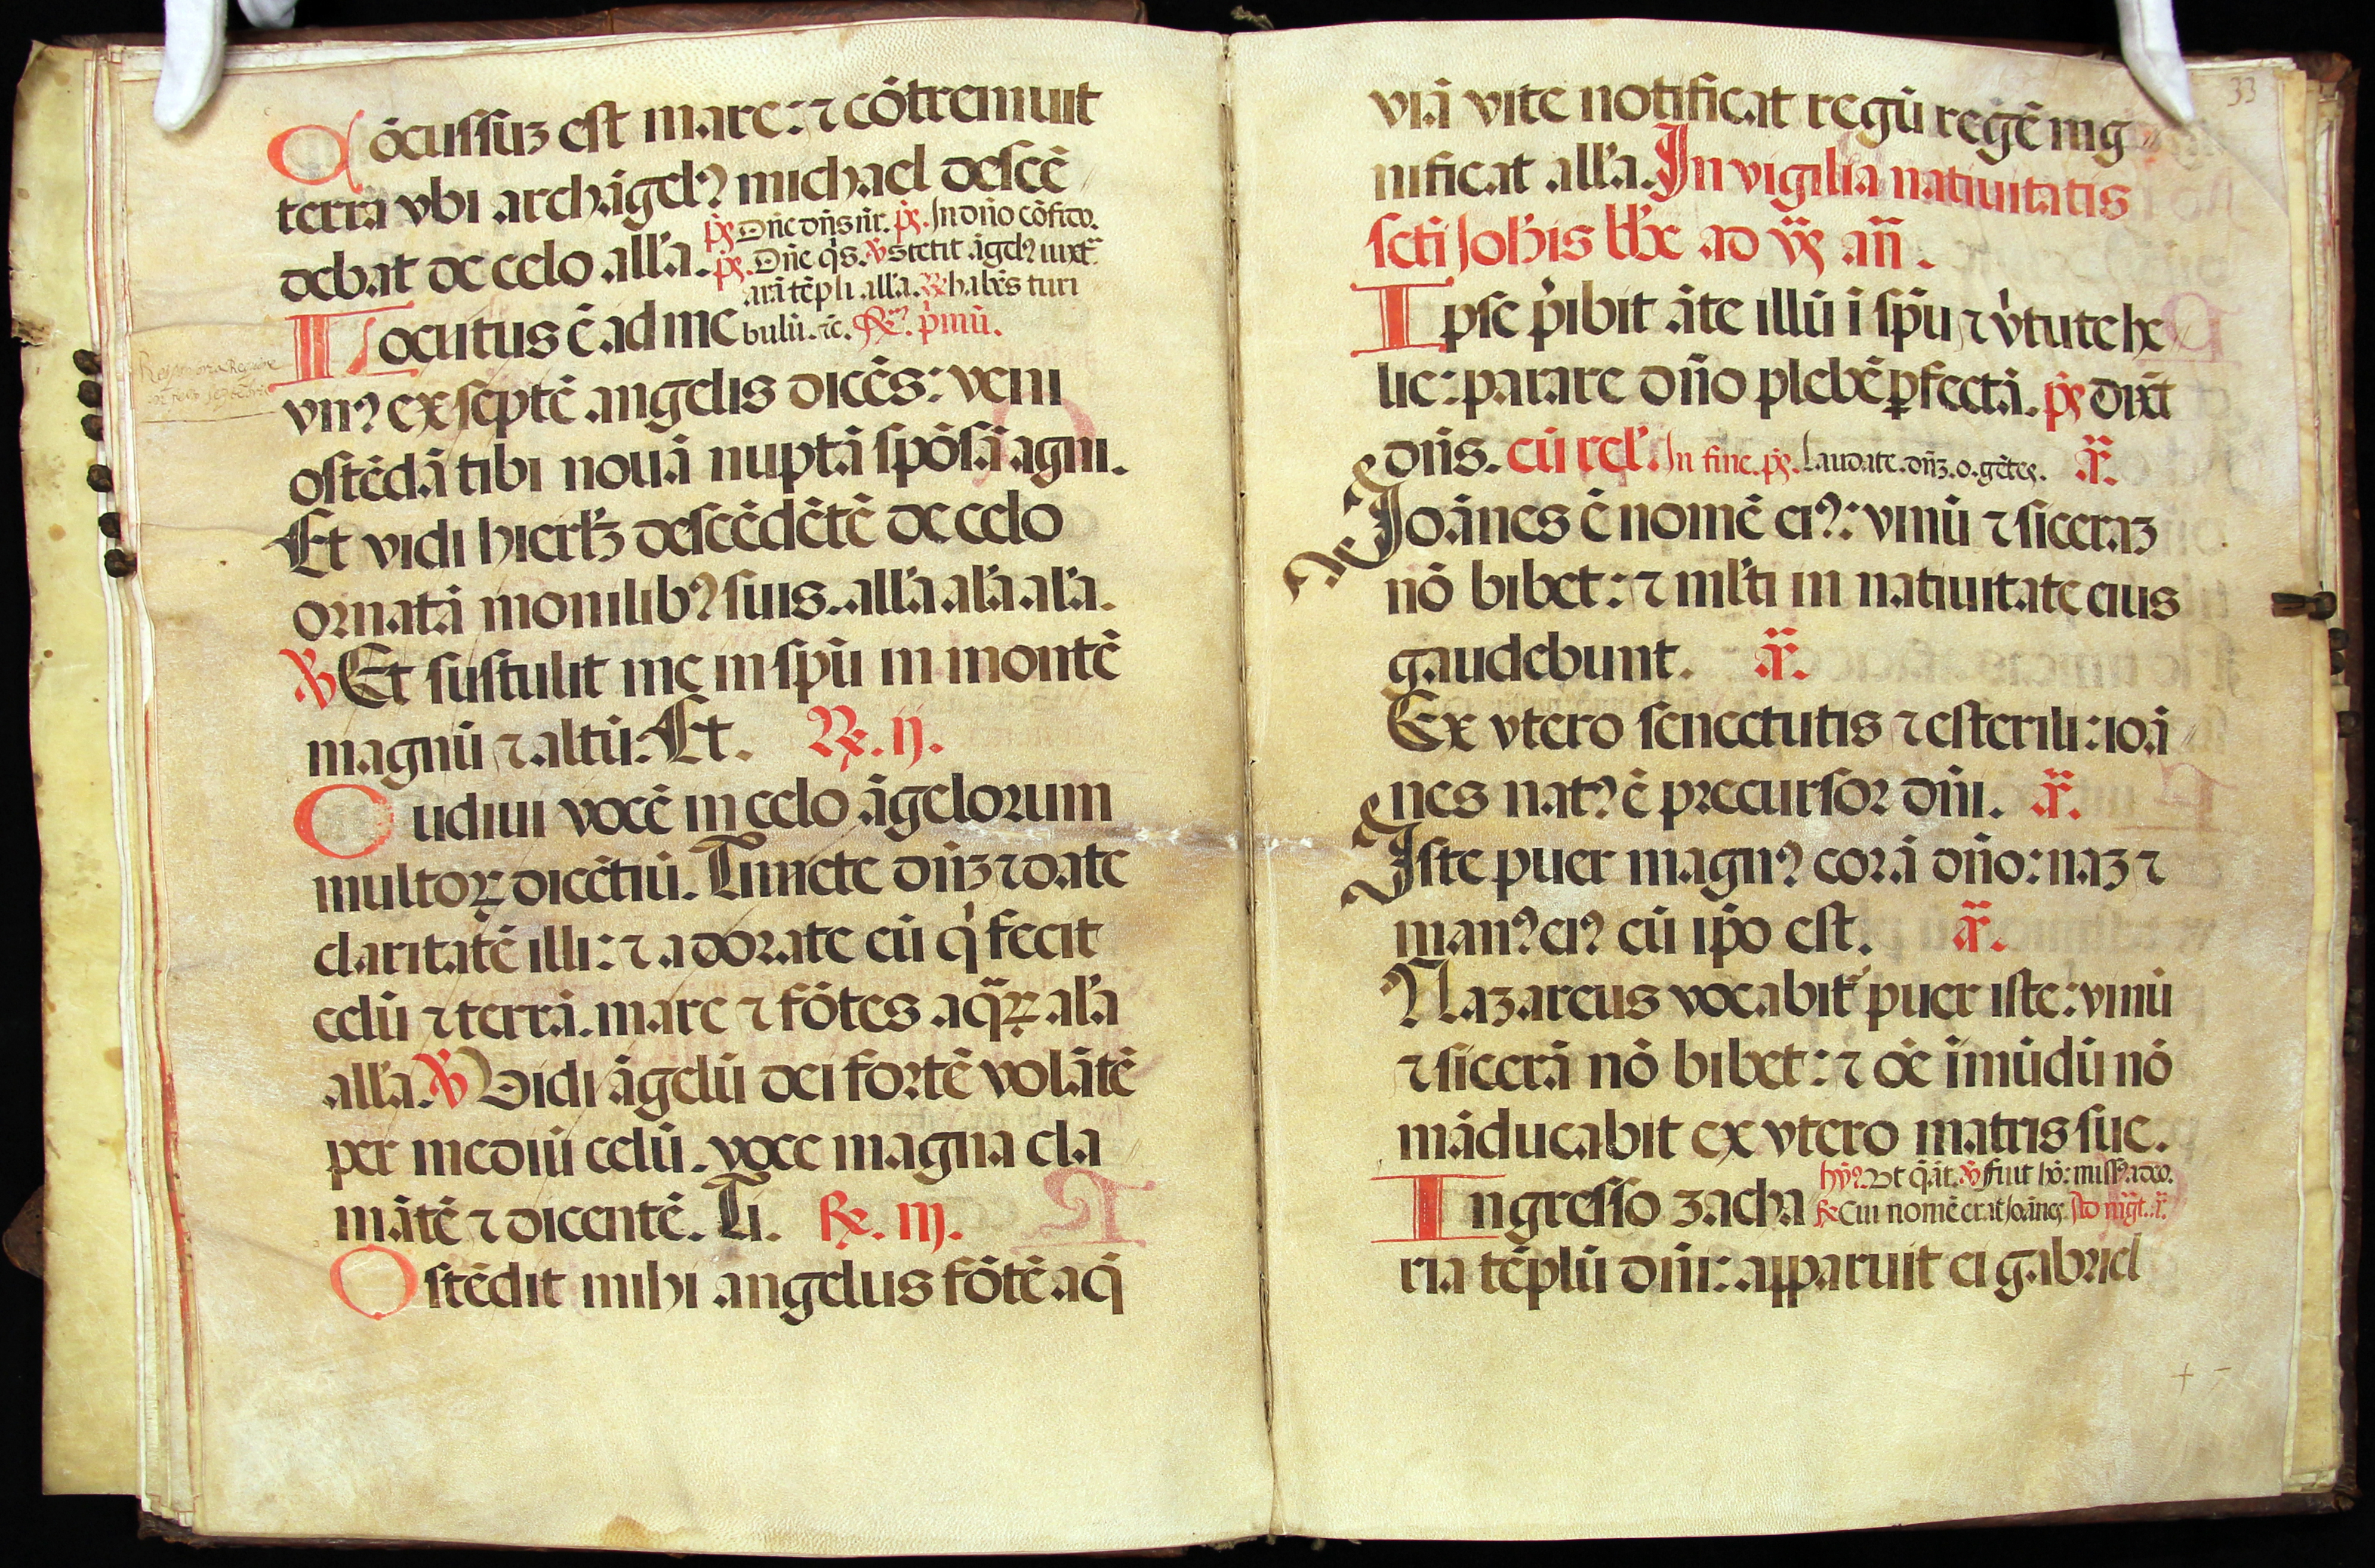 Cōcussuʒ est mare: ⁊ cōtremuit
terrā vbi archāgelꝰ michael descē
debat de celo all'a. p̄s Dn̄e dn̄s nr̄. p̄s. In dn̄o cōfido.
p̄s. Dn̄e q̇s. ℣ Stetit āgelꝰ iuxͣ
arā tēpli all'a. ℟ habēs turi
Locutus ē ad me bulū. ⁊c̄. ℟m. p̓mū.
vnꝰ ex septē angelis dicēs: veni
ostēdā tibi nouā nuptā spōsā agni.
Et vidi hierl'ʒ descēdētē de celo
ornatā monilibꝰ suis. all'a al'a al'a.
℣ Et sustulit me in sp̄u in montē
magnū ⁊ altū: Et. ℟. ij.
Audiui vocē in celo āgelorum
multoꝝ dicētiū. Timete dn̄ʒ ⁊ date
claritatē illi: ⁊ adorate eū q̓ fecit
celū ⁊ terrā. mare ⁊ fōtes aq̄ꝝ al'a
all'a. ℣ Vidi āgelū dei fortē volātē
per mediū celū. voce magna cla
mātē ⁊ dicentē. Ti. ℟. iij.
Ostēdit mihi angelus fōtē aq̄
33
viā vite notificat regū regē mg
nificat all'a. In vigilia natiuitatis
scti Joh̄is bb̄e ad v̄s an̄.
Ipse p̓ibit āte illū ī sp̄u ⁊ v̓tute he
lie: parare dn̄o plebē ꝑfectā. p̄s dixt̄
dn̄s. cū rel'. In fine. p̄s. Laudate. dn̄ʒ. o. gētes. ā.
Joānes ē nomē eiꝰ: vinū ⁊ siceraʒ
nō bibet: ⁊ ml'ti in natiuitate eius
gaudebunt. ā.
Ex vtero senectutis ⁊ esterili: ioā
nes natꝰ ē precursor dn̄i. ā.
Iste puer magnꝰ corā dn̄o: naʒ ⁊
manꝰ eiꝰ cū ip̄o est. ā.
Nazareus vocabit' puer iste: vinū
⁊ sicerā nō bibet: ⁊ oē īmūdū nō
māducabit ex vtero matris sue.
hy̓ꝰ. Vt q̄āt. ℣ Fuit hō: missꝰ a deo.
Ingresso zacha ℟ Cui nomē erat Joānes. Ad mḡt. ā.
ria tēplū dn̄i: apparuit ei gabriel